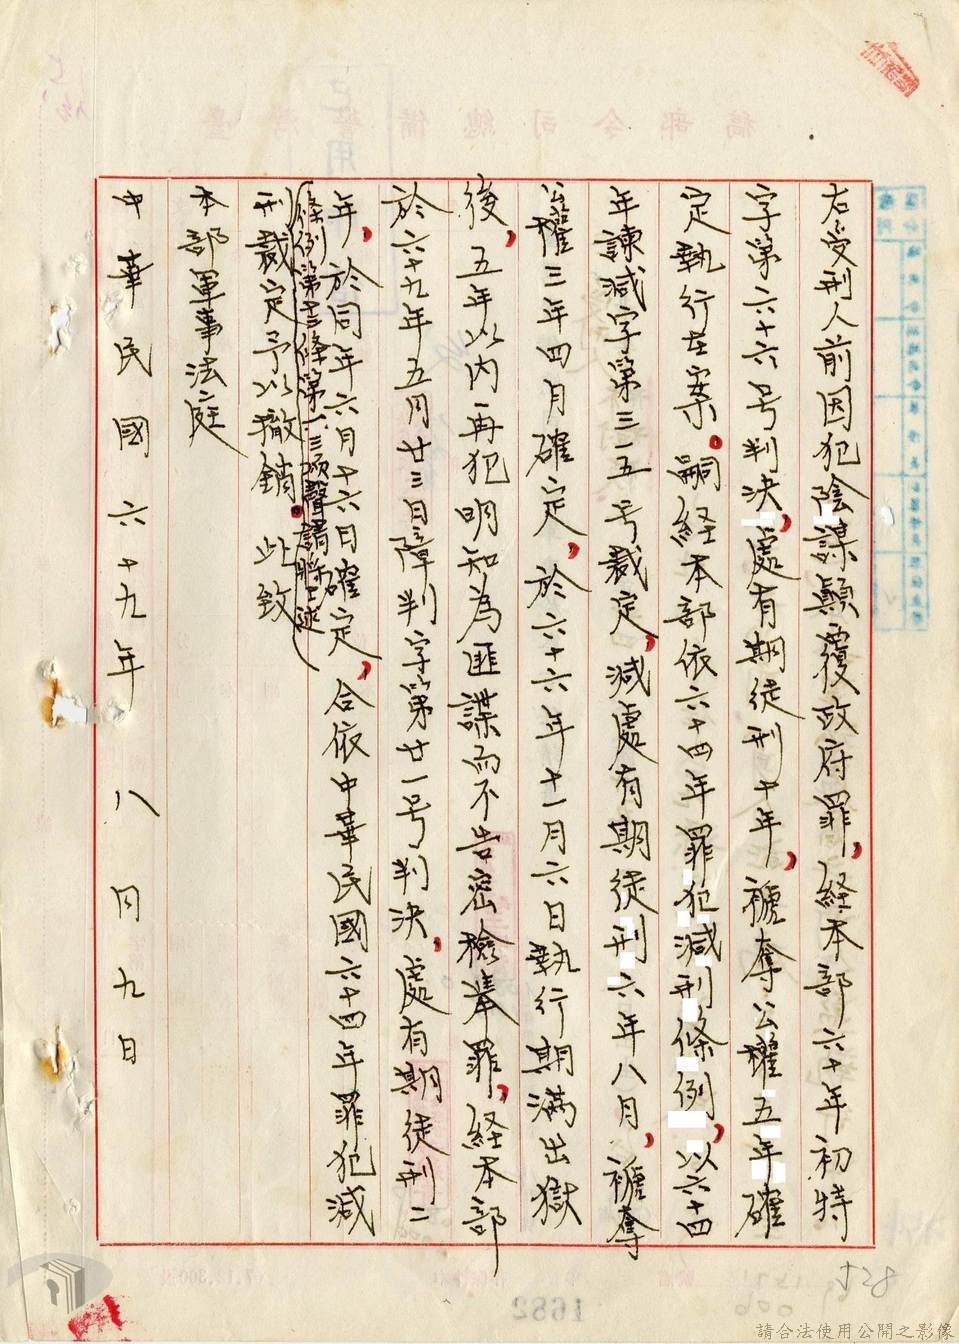 右受刑人前因犯陰謀顛覆政府罪，経本部六十年初特
字第六十六号判決，處有期徒刑十年，褫奪公權五年確
定執行在案。嗣経本部依六十四年罪犯減刑條例，以六十四
年諫減字第三一五号裁定，減處有期徒刑六年八月，褫奪
公權三年四月確定，於六十六年十一月六日執行期満出獄
後，五年以内再犯明知為匪諜而不告密檢舉罪，経本部
於六十九年五月廿三日障判字第廿一号判決，處有期徒刑二
年，於同年六月十六日確定，合依中華民國六十四年罪犯減
刑條例第十二條第一、三項聲請將上述
刑裁定予以撤銷。此致
本部軍事法庭
中華民國六十九年八月九日
528
1682
請合法使用公開之影像